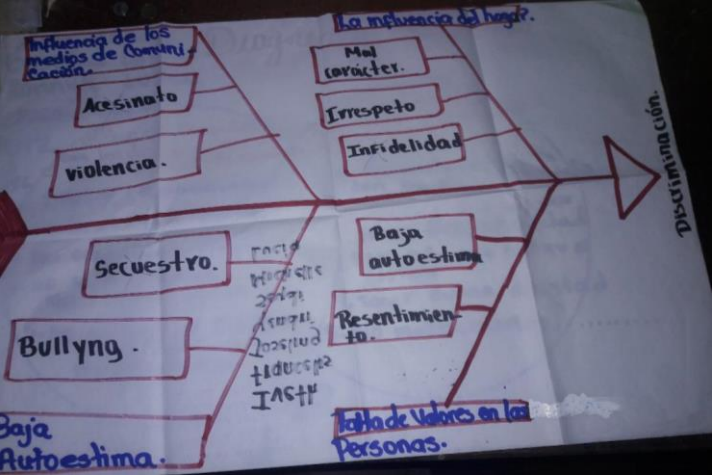 Influencia de los
medios de Comuni
cación.
Acesinato
violencia.
¿La influencia del hogar?.
Mal
carácter.
Irrespeto
Infidelidad
Discriminación.
Secuestro.
Bullyng.
Baja
Autoestima.
Baja
autoestima
Resentimien-
to.
Falta de Valores en las
Personas.